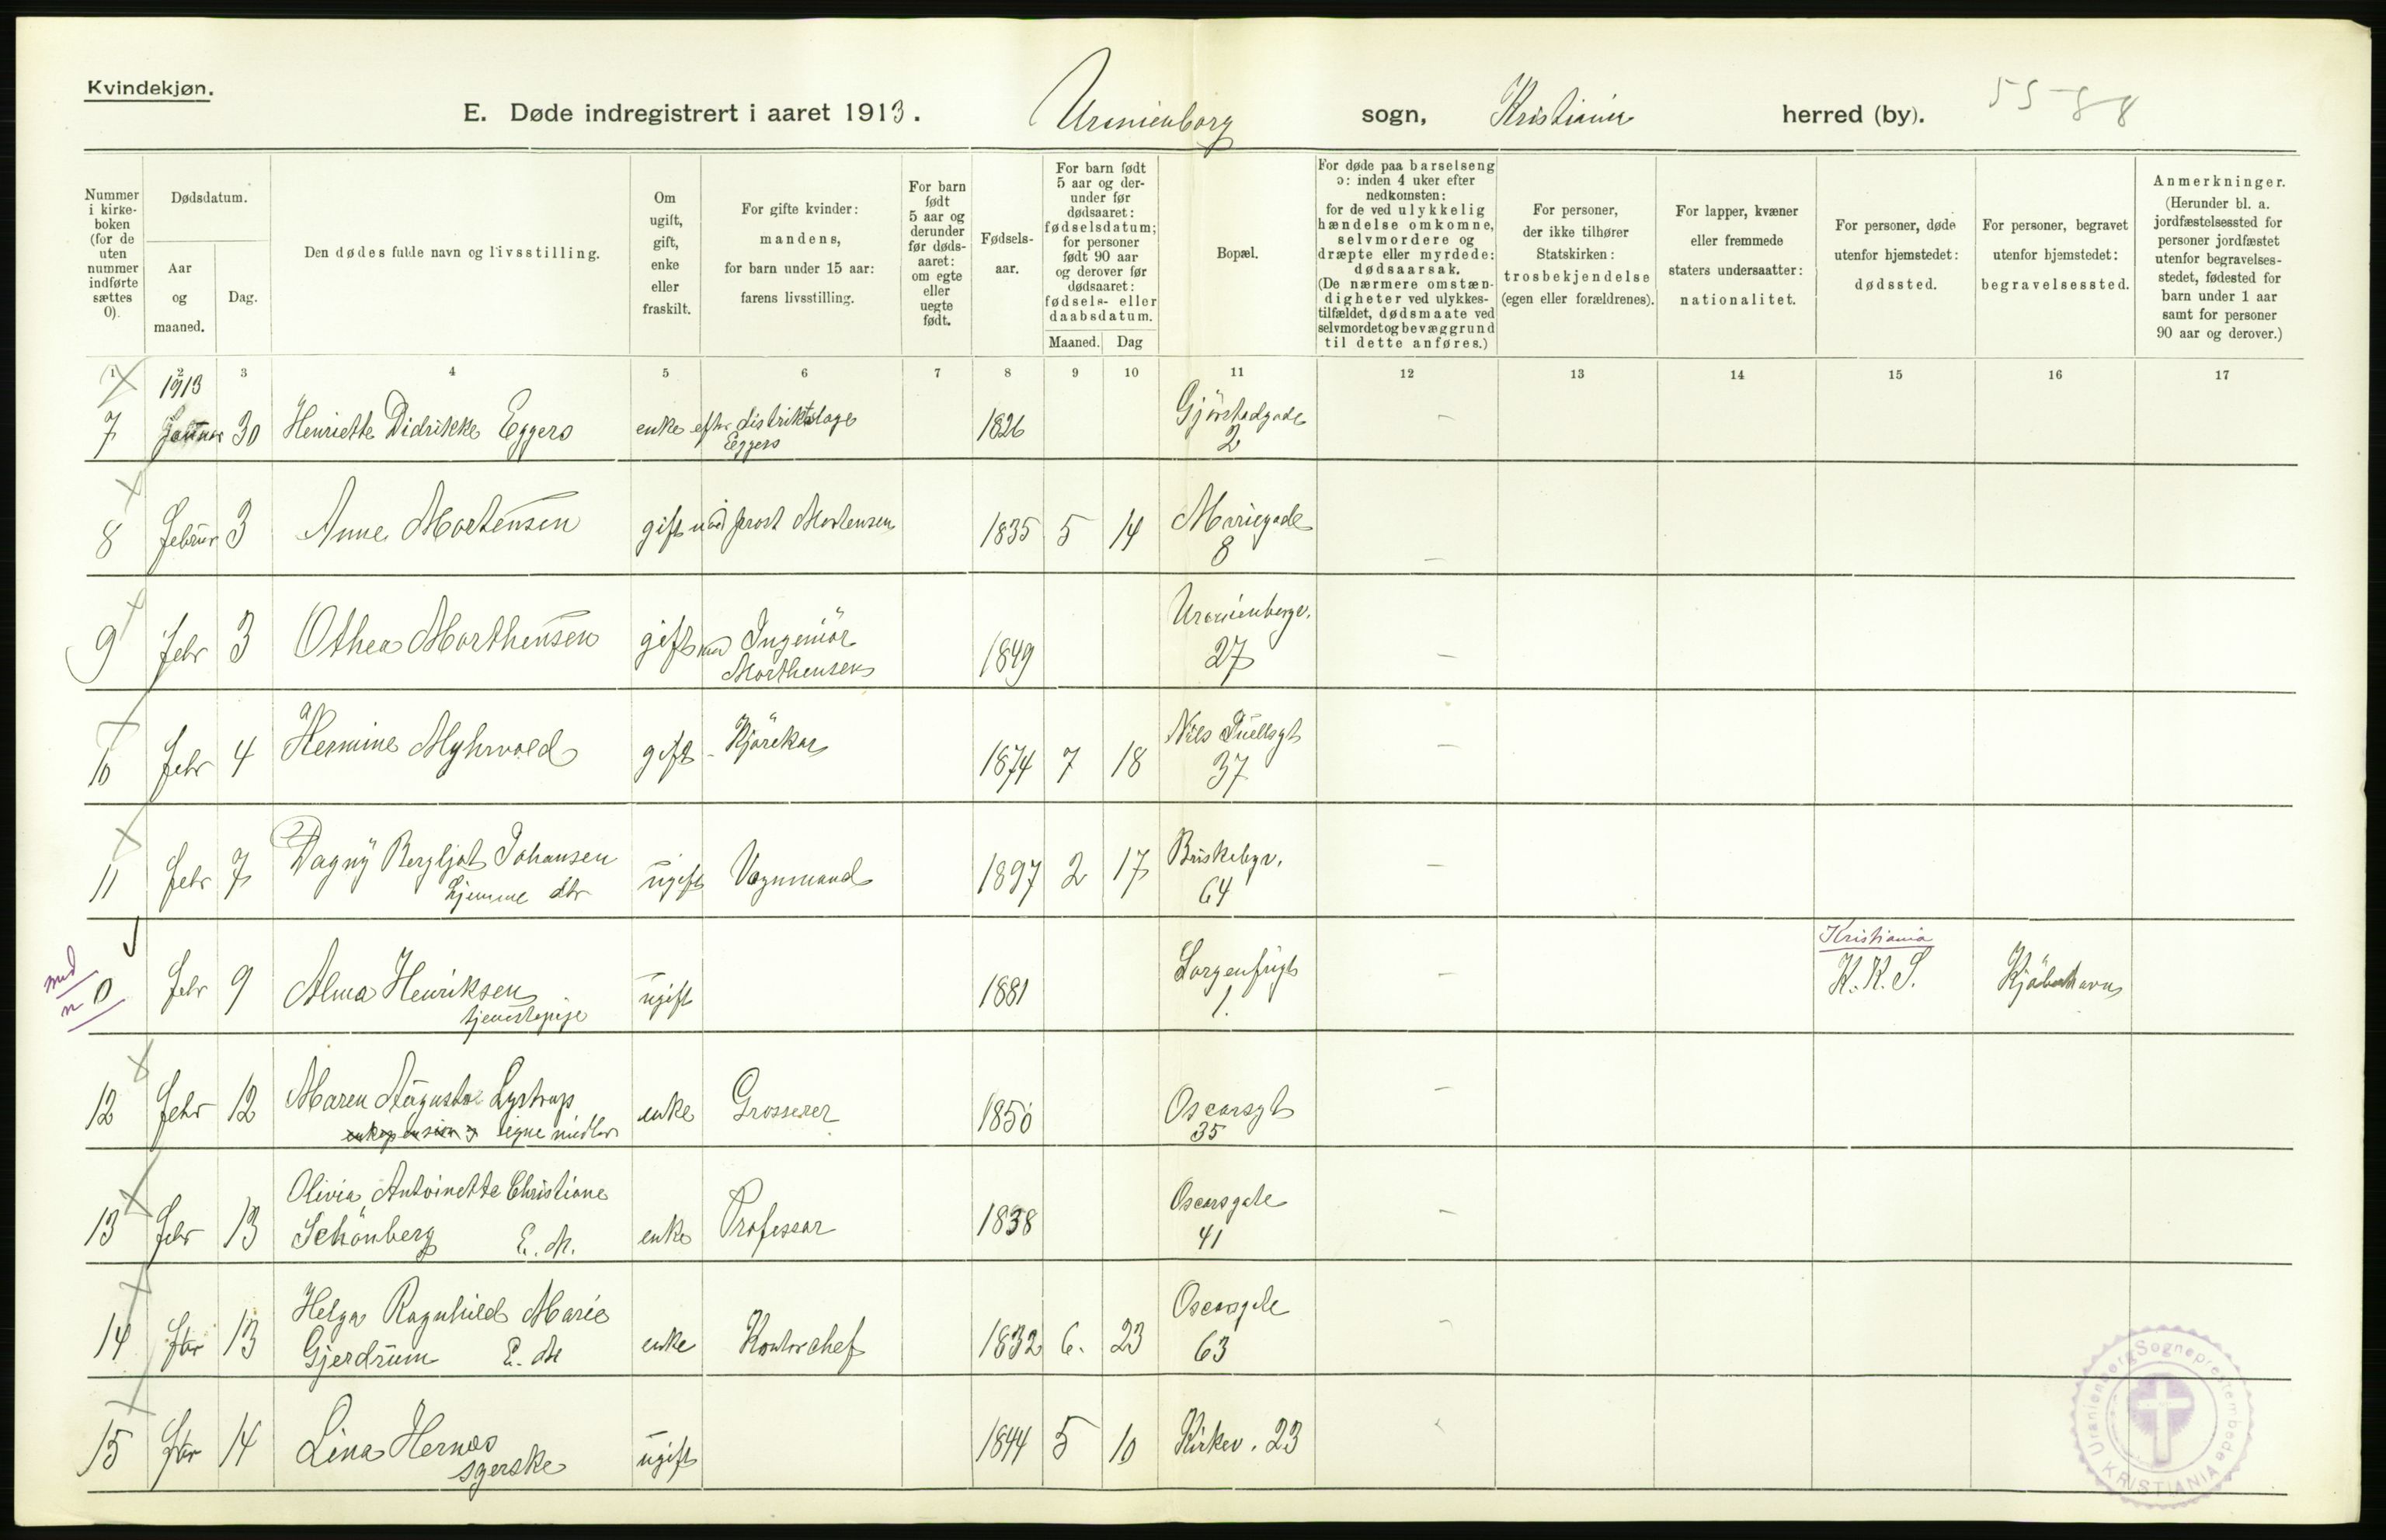 Kvindekjøn.
E. Døde indregistrert i aaret 1913. Uranienborg sogn, Kristiania herred (by). 5588
Nummer i kirke-boken (for de uten nummer indførte sættes 0).
Dødsdatum.
Aar og maaned.
Dag.
Den dødes fulde navn og livsstilling.
Om ugift, gift, enke eller fraskilt.
For gifte kvinder: mandens, for barn under 15 aar: farens livsstilling.
For barn født 5 aar og derunder før døds-aaret: om egte eller uegte født.
Fødsels-aar.
For barn født 5 aar og der-under før dødsaaret: fødselsdatum; for personer født 90 aar og derover før dødsaaret: fødsels- eller daabsdatum.
Maaned. Dag
Bopæl.
For døde paa barselseng ɔ: inden 4 uker efter nedkomsten: for de ved ulykkelig hændelse omkomne, selvmordere og dræpte eller myrdede: dødsaarsak. (De nærmere omstæn-digheter ved ulykkes-tilfældet, dødsmaate ved selvmordet og bevæggrund til dette anføres.)
For personer, der ikke tilhører Statskirken: trosbekjendelse (egen eller forældrenes).
For lapper, kvæner eller fremmede staters undersaatter: nationalitet.
For personer, døde utenfor hjemstedet: dødssted.
For personer, begravet utenfor hjemstedet: begravelsessted.
Anmerkninger. (Herunder bl. a. jordfæstelsessted for personer jordfæstet utenfor begravelses-stedet, fødested for barn under 1 aar samt for personer 90 aar og derover.)
1 2 3 4 5 6 7 8 9 10 11 12 13 14 15 16 17
1913
7 Januar 30 Henriette Didrikke Eggers enke efter distriktslæge Eggers 1826 2 –
8 Februar 3 Anne Mortensen gift med prost Mortensen 1835 5 14 Mariegade 8 –
9 Febr 3 Othea Morthensen gift med Ingeniör Morthensen 1849 Uranienborgv. 27 –
10 Febr 4 Hermine Myhrvold gift - Kjörekar 1874 7 18 Nils Juellsgt 37 –
11 Febr 7 Dagny Bergljot Johansen hjemme dtr ugift Vognmand 1897 2 17 Briskebyv. 64 –
0 Febr 9 Alma Henriksen tjenestepige ugift 1881 Sorgenfrigt 1. – Kristiania K. K. S. Kjöbenhavn
12 Febr 12 Maren Augusta Lystrup enkepension & egne midler enke Grosserer 1850 Oscarsgt 35 –
13 Febr 13 Olivia Antoinette Christiane Schönberg E. M. enke Professor 1838 Oscarsgate 41 –
14 Febr 13 Helga Ragnhild Marie Gjerdrum E. M enke Kontorchef 1832 6. 23 Oscarsgate 63 –
15 Febr 14 Lina Hernæs syerske ugift 1844 5 10 Kirkev. 23
Uranienborg Sogneprestembede
KRISTIANIA